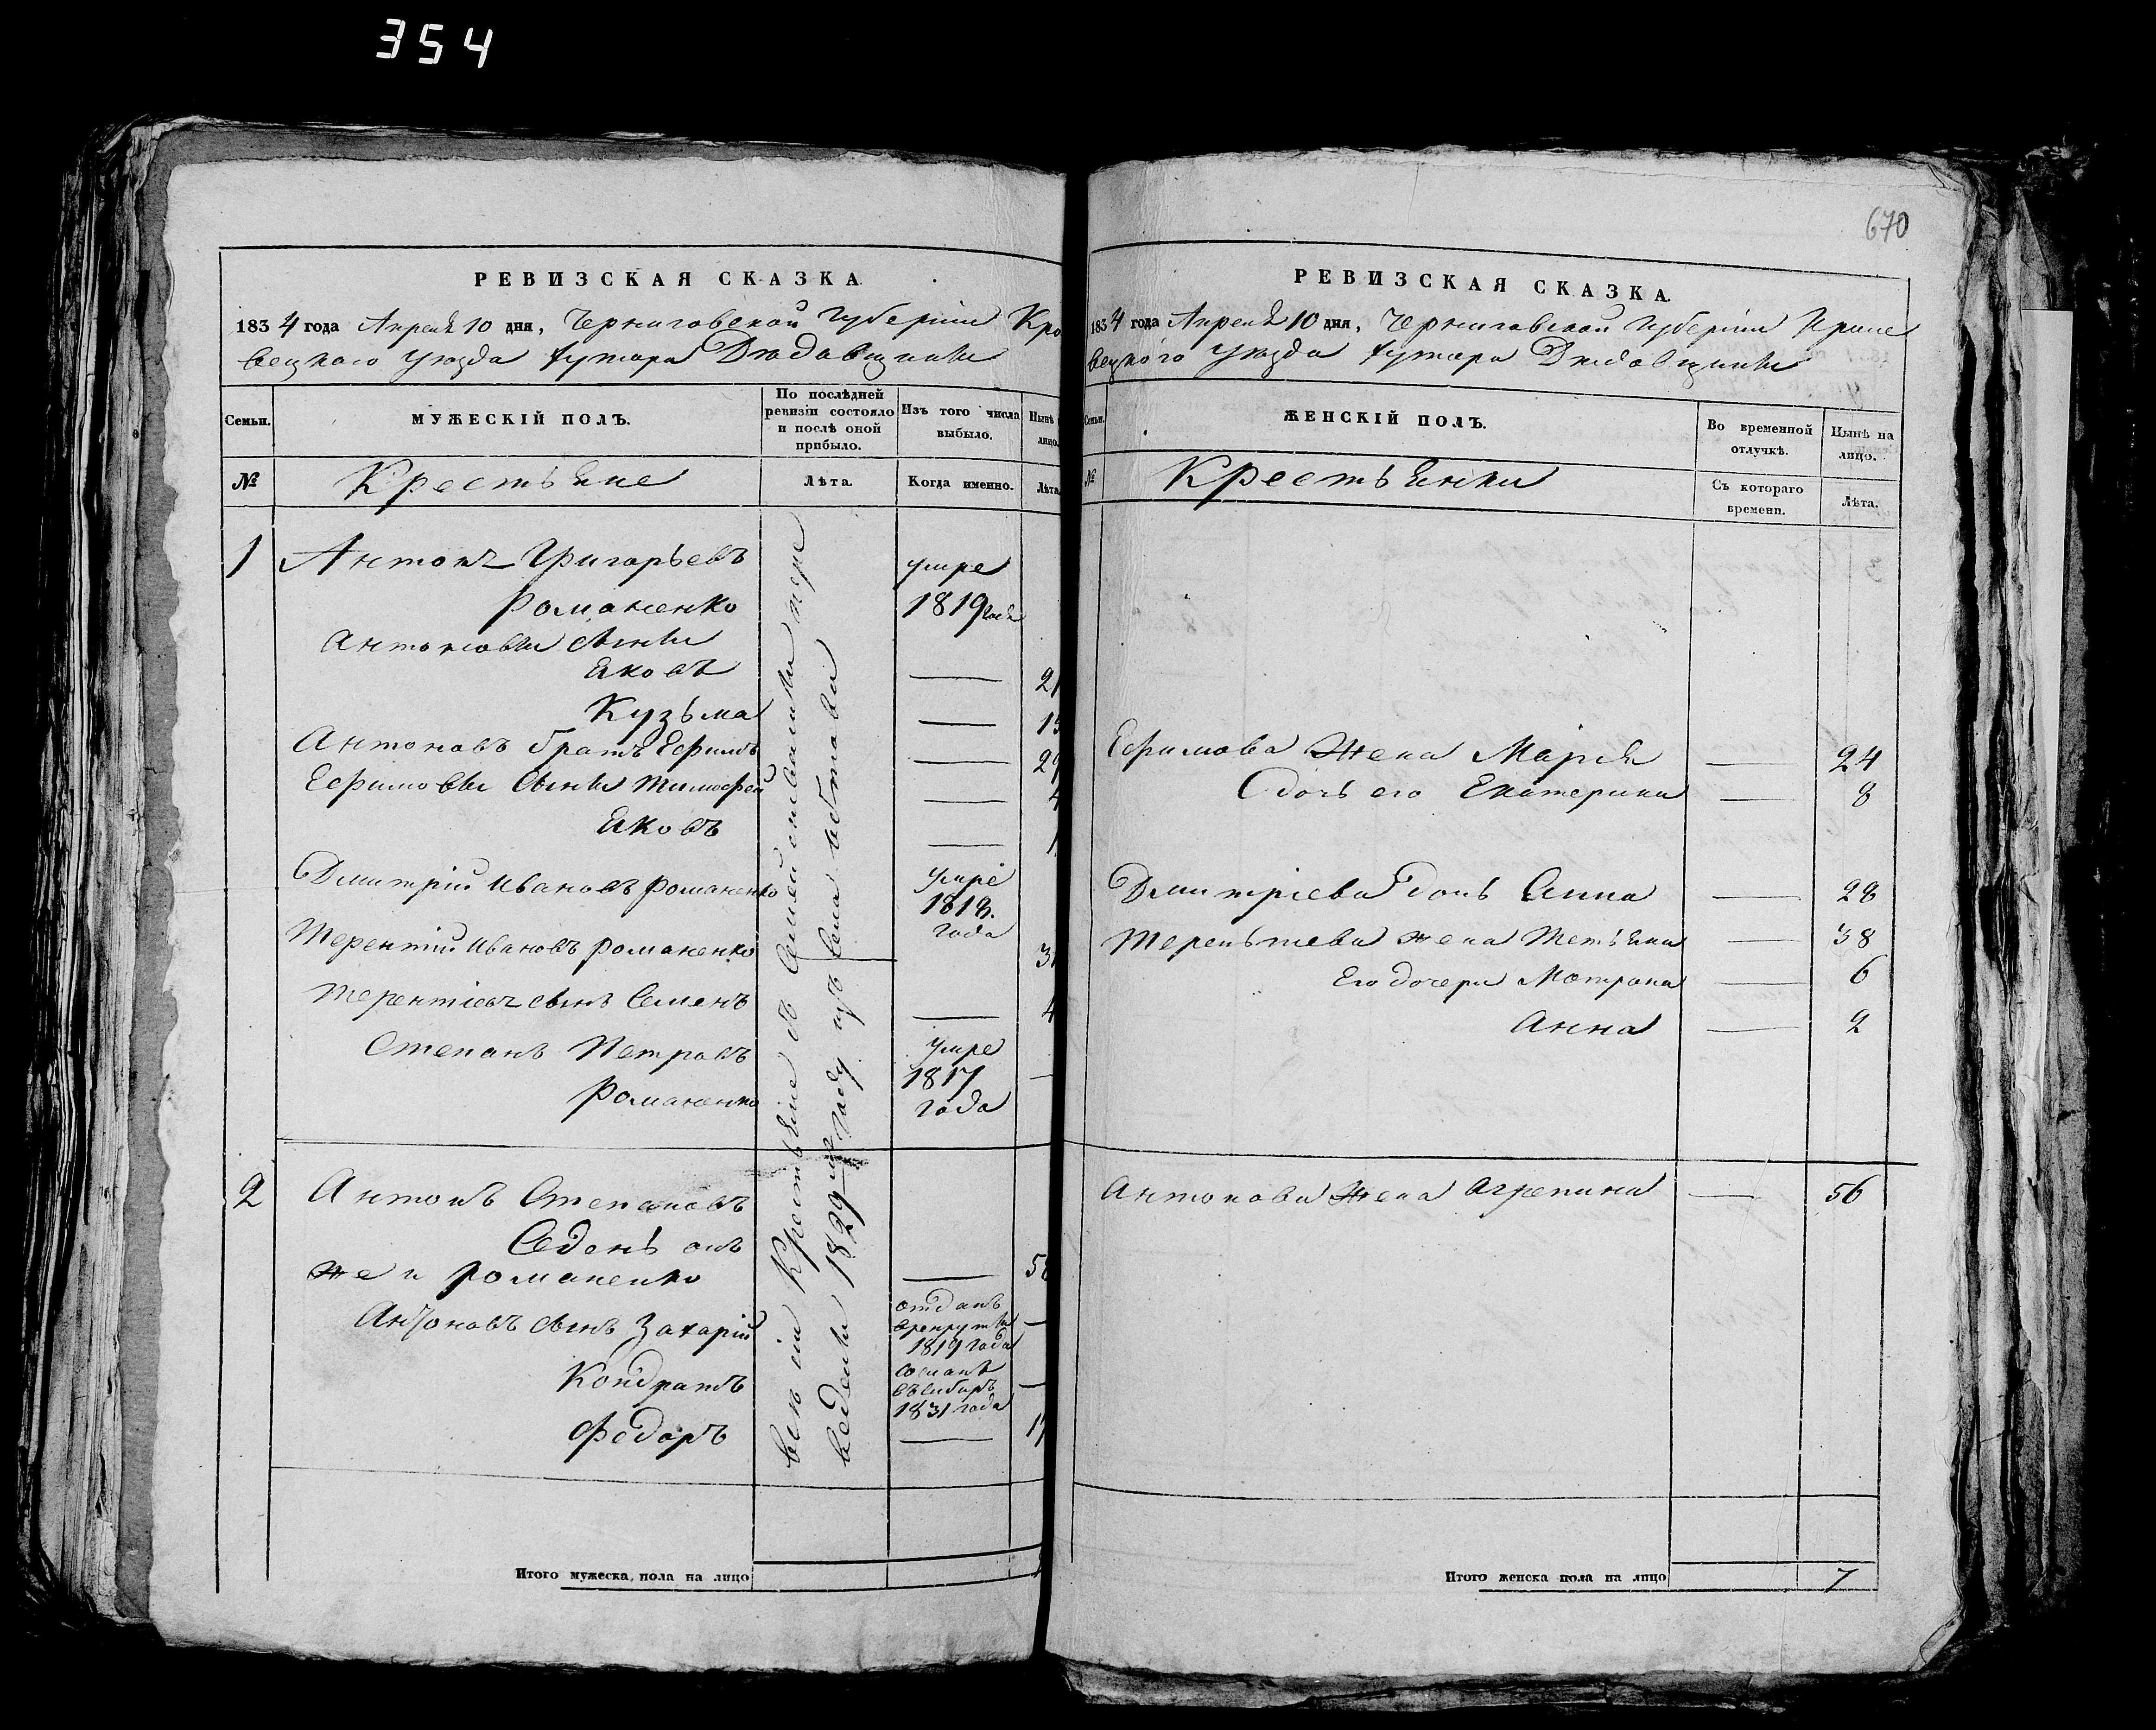 354
670
РЕВИЗСКАЯ СКАЗКА
1834 года Апреля 10 дня, Черниговской Губернiи Кро
вецкаго уезда хутора Дюдовщины
Семьи.
МУЖЕСКІЙ ПОЛЪ.
По послѣдней ревизіи состояло и послѣ оной прибыло.
Изъ того числа выбыло.
Нынѣ лицо.
№
Крестьяне
Лѣта.
Когда именно.
Лѣта
1 Антонъ Григорьевъ
Романенко
умре 1819 года
Антоновы сыны
Яковъ — 21
Кузьма — 15
Антоновъ братъ Ефимъ — 29
Ефимовы сыны Тимофей — 4
Яковъ — 1
Дмитрій Ивановъ Романенко умре 1818. года
Терентій Ивановъ Романенко 31
Терентіевъ сынъ Семенъ — 4
Степанъ Петровъ
Романенко
умре 1817 года —
2 Антонъ Степановъ
Седень онъ
же и Романенко — 58
Антоновъ сынъ Захарій отданъ в рекруты 1819 года —
Кондратъ сосланъ въ сибирь 1831 года —
Федоръ — 17
всѣ сіи Крестьяне въ пере
ведены 1829 году изъ села
Итого мужеска пола на лицо
РЕВИЗСКАЯ СКАЗКА.
1834 года Апреля 10 дня, Черниговской Губерніи Кроле
вецкого Уезда хутора Дюдовщины
Семьи.
ЖЕНСКІЙ ПОЛЪ.
Во временной отлучкѣ.
Нынѣ на лицо.
№
Крестьянки
Съ котораго времени.
Лѣта.
Ефимова Жена Марія — 24
дочь его Екатерина — 8
Дмитріева дочь Анна — 28
Терентьева жена Тетьяна — 38
Его дочери Мотрона — 6
Анна — 2
Антонова Жена Агрепина — 56
Итого женска пола на лицо 7